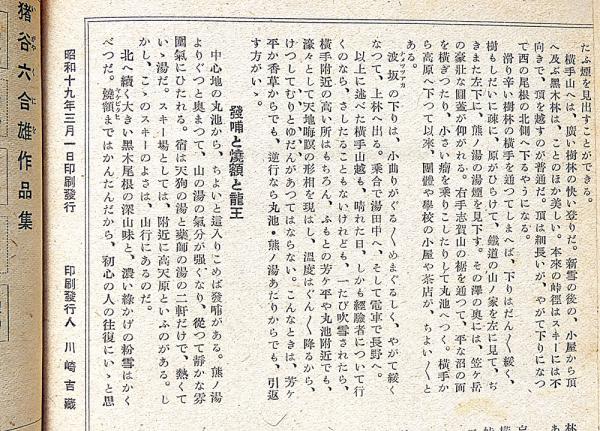 たふ煙を見出すことができる。
横手山へは、廣い樹林の快い登りだ。新雪の後の、小屋から頂
へ及ぶ黑木林は、ことのほか美しい。本來の峠徑はスキーには不
向きで、頂を越すのが普通だ。頂は細長いが、やがて下りになつ
て西の尾根の北側へ下るやうになる。
滑り辛い樹林の橫手を通つてしまへば、下りはだん〱緩く、
樹もしだいに疎に、原がひらけて、鐵道の山ノ家を左に見て、ぢ
きまた左下に、熊ノ湯の湯煙を見下す。その澤の奥には、笠ヶ岳
の豪壮な圓蓋が仰がれる。右手志賀山の裾を通つて、平な沼の面
を橫ぎつたり、小さい瘤を乘りこしたりして丸池へつく。橫手か
ら高原へ下つて以來、團體や學校の小屋や茶店が、ちよい〱と
ある。
波坂の下りは、小曲りがぐる〱めまぐるしく、やがて緩く
なつて、上林へ出る。乘合で湯田中へ、そして電車で長野へ。
以上に述べた橫手山越も、晴れた日、しかも經驗者について行
くのなら、さしたることもないけれども、一たび吹雪されたら、
橫手附近の高い所はもちろん、ふもとの芳ヶ平や丸池附近でも、
濛々として天地晦瞑の形相を現はし、溫度はぐん〱降るから、
けつしてむりとゆだんがあつてはならない。こんなときは、芳ヶ
平か香草からでも、逆行なら丸池・熊ノ湯あたりからでも、引返
す方がいゝ。
發哺と燒額と龍王
中心地の丸池から、ちよいと這入りこめば發哺がある。熊ノ湯
よりぐつと奥まつて、山の湯の氣分が强くなり、從つて靜かな雰
圍氣にひたれる。宿は天狗の湯と藥師の湯の二軒だけで、熱くて
いゝ湯だ。スキー場としては、附近に高天原といふのがある。し
かし、こゝのスキーのよさは、山行にあるのだ。
北へ續く大きい黑木尾根の深山味と、濃い綠かげの粉雪はかく
べつだ。燒額まではかんたんだから、初心の人の往復にいゝと思
昭和十九年三月一日印刷發行
印刷發行人 川崎吉藏
猪谷六合雄作品集